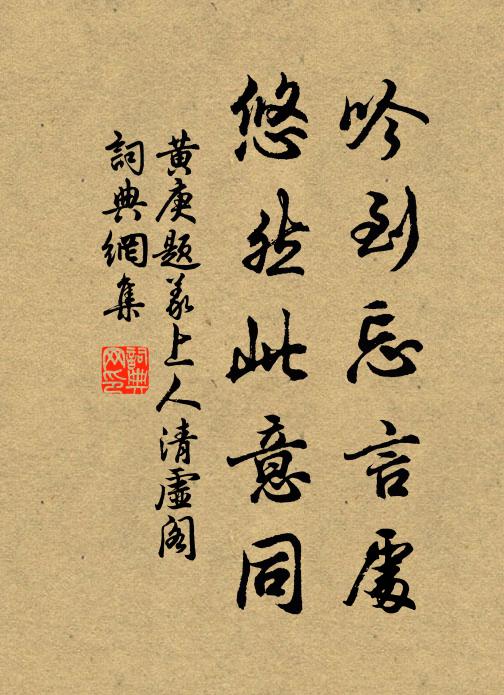 吟到忘言處
悠然此意同
黃庚題義上人清虛閣
詞典網集
詞典
网印